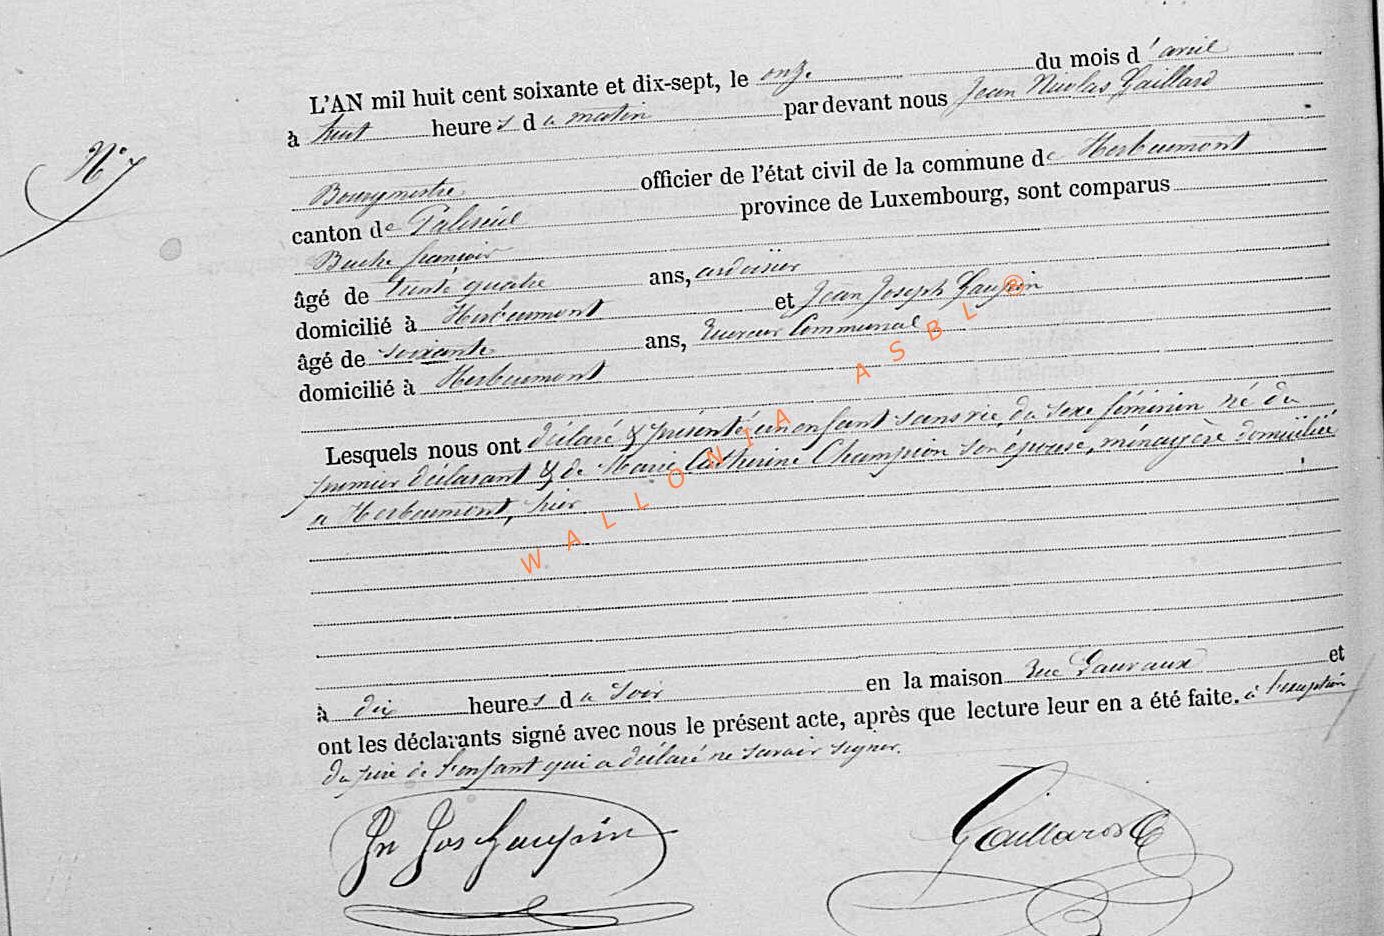 L'AN mil huit cent soixante et dix-sept, le onze du mois d'avril
à huit heures du matin par devant nous Jean Nicolas Gaillard
N° 7
Bourgmestre officier de l'état civil de la commune de Herbeumont
canton de Paliseul province de Luxembourg, sont comparus
Buche françois
âgé de trente quatre ans, ardoisier
domicilié à Herbeumont et Jean Joseph Gaupin
âgé de soixante ans, receveur Communal
domicilié à Herbeumont
Lesquels nous ont déclaré & présenté un enfant sans vie, du sexe féminin né du
premier déclarant & de Marie Catherine Champion son épouse, ménagère domiciliée
a Herbeumont, hier
WALLONIA ASBL ®
à dix heures du soir en la maison rue Lauvaux et
ont les déclarants signé avec nous le présent acte, après que lecture leur en a été faite. à l'exception
du père de l'enfant qui a déclaré ne savoir signer.
Jn Jos Gaupin Gaillard